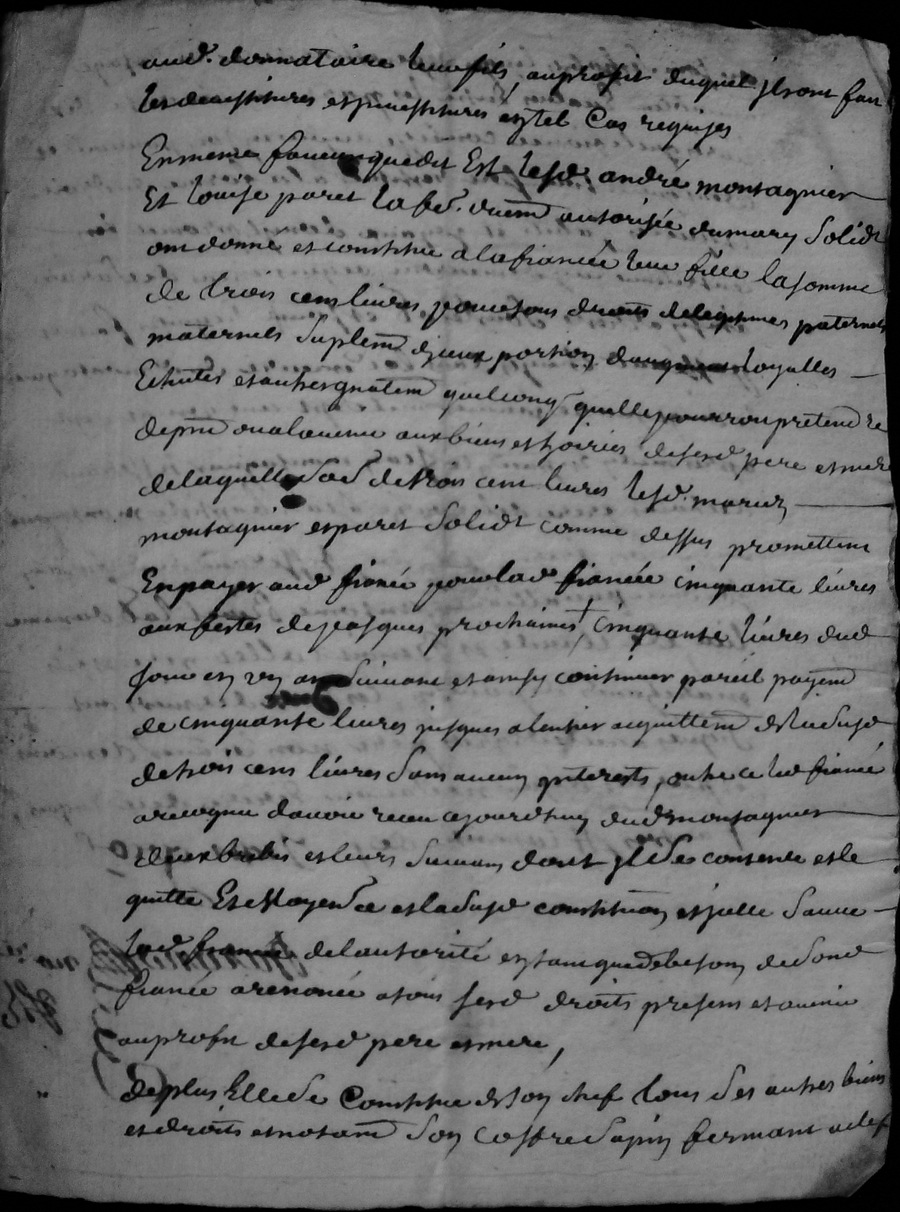 aud. donnataire leur fils, au profit duquel jls ont fait
les devestitures et jnvestitures en tel cas requises
En meme faveur que dit Est lesd. andré montagnier
Et louise paret la fe. duem. autorisée du mary solidt.
ont donné et constitué a la fiancée leur fille la somme
de trois cens livres pour tous droits de legitimes paternels
maternels suplem. d'jceux portion d'augment loyalles
Echutes et autres gnalem. quelconq. quelle pourroit pretendre
de pnt. ou a lavenir aux biens et hoiries de sesd. pere et mere
de laquelle sod. de trois cent livres lesd. mariez
montagnier et paret solidt. comme dessus promettent
En payer aud. fiancé pour lad. fiancée cinquante livres
aux festes de pasques prochaines + cinquante livres dud.
jour en un an suivant et ainsy continuer pareil payem.
de cinquante livres jusques a lentier acquittem. de lad. susd.
de trois cens livres sans aucun jnterests, outre ce led. fiancé
a recognu davoir receu cejourdhuy dud. montagnier
deux brebis et leurs suivans dont jl se contente et le
quitte Et moyent. ce et lad. susd. constitution et jcelle sauve
lad. fiancée de lautorité en tant que de besoin de sond.
fiancé a renoncé a tous sesd. droits presens et avenir
au profit de sesd. pere et mere,
de plus Elle se Constitue de son chef tous ses autres biens
et droits et notam. son coffre sapin fermant a clef